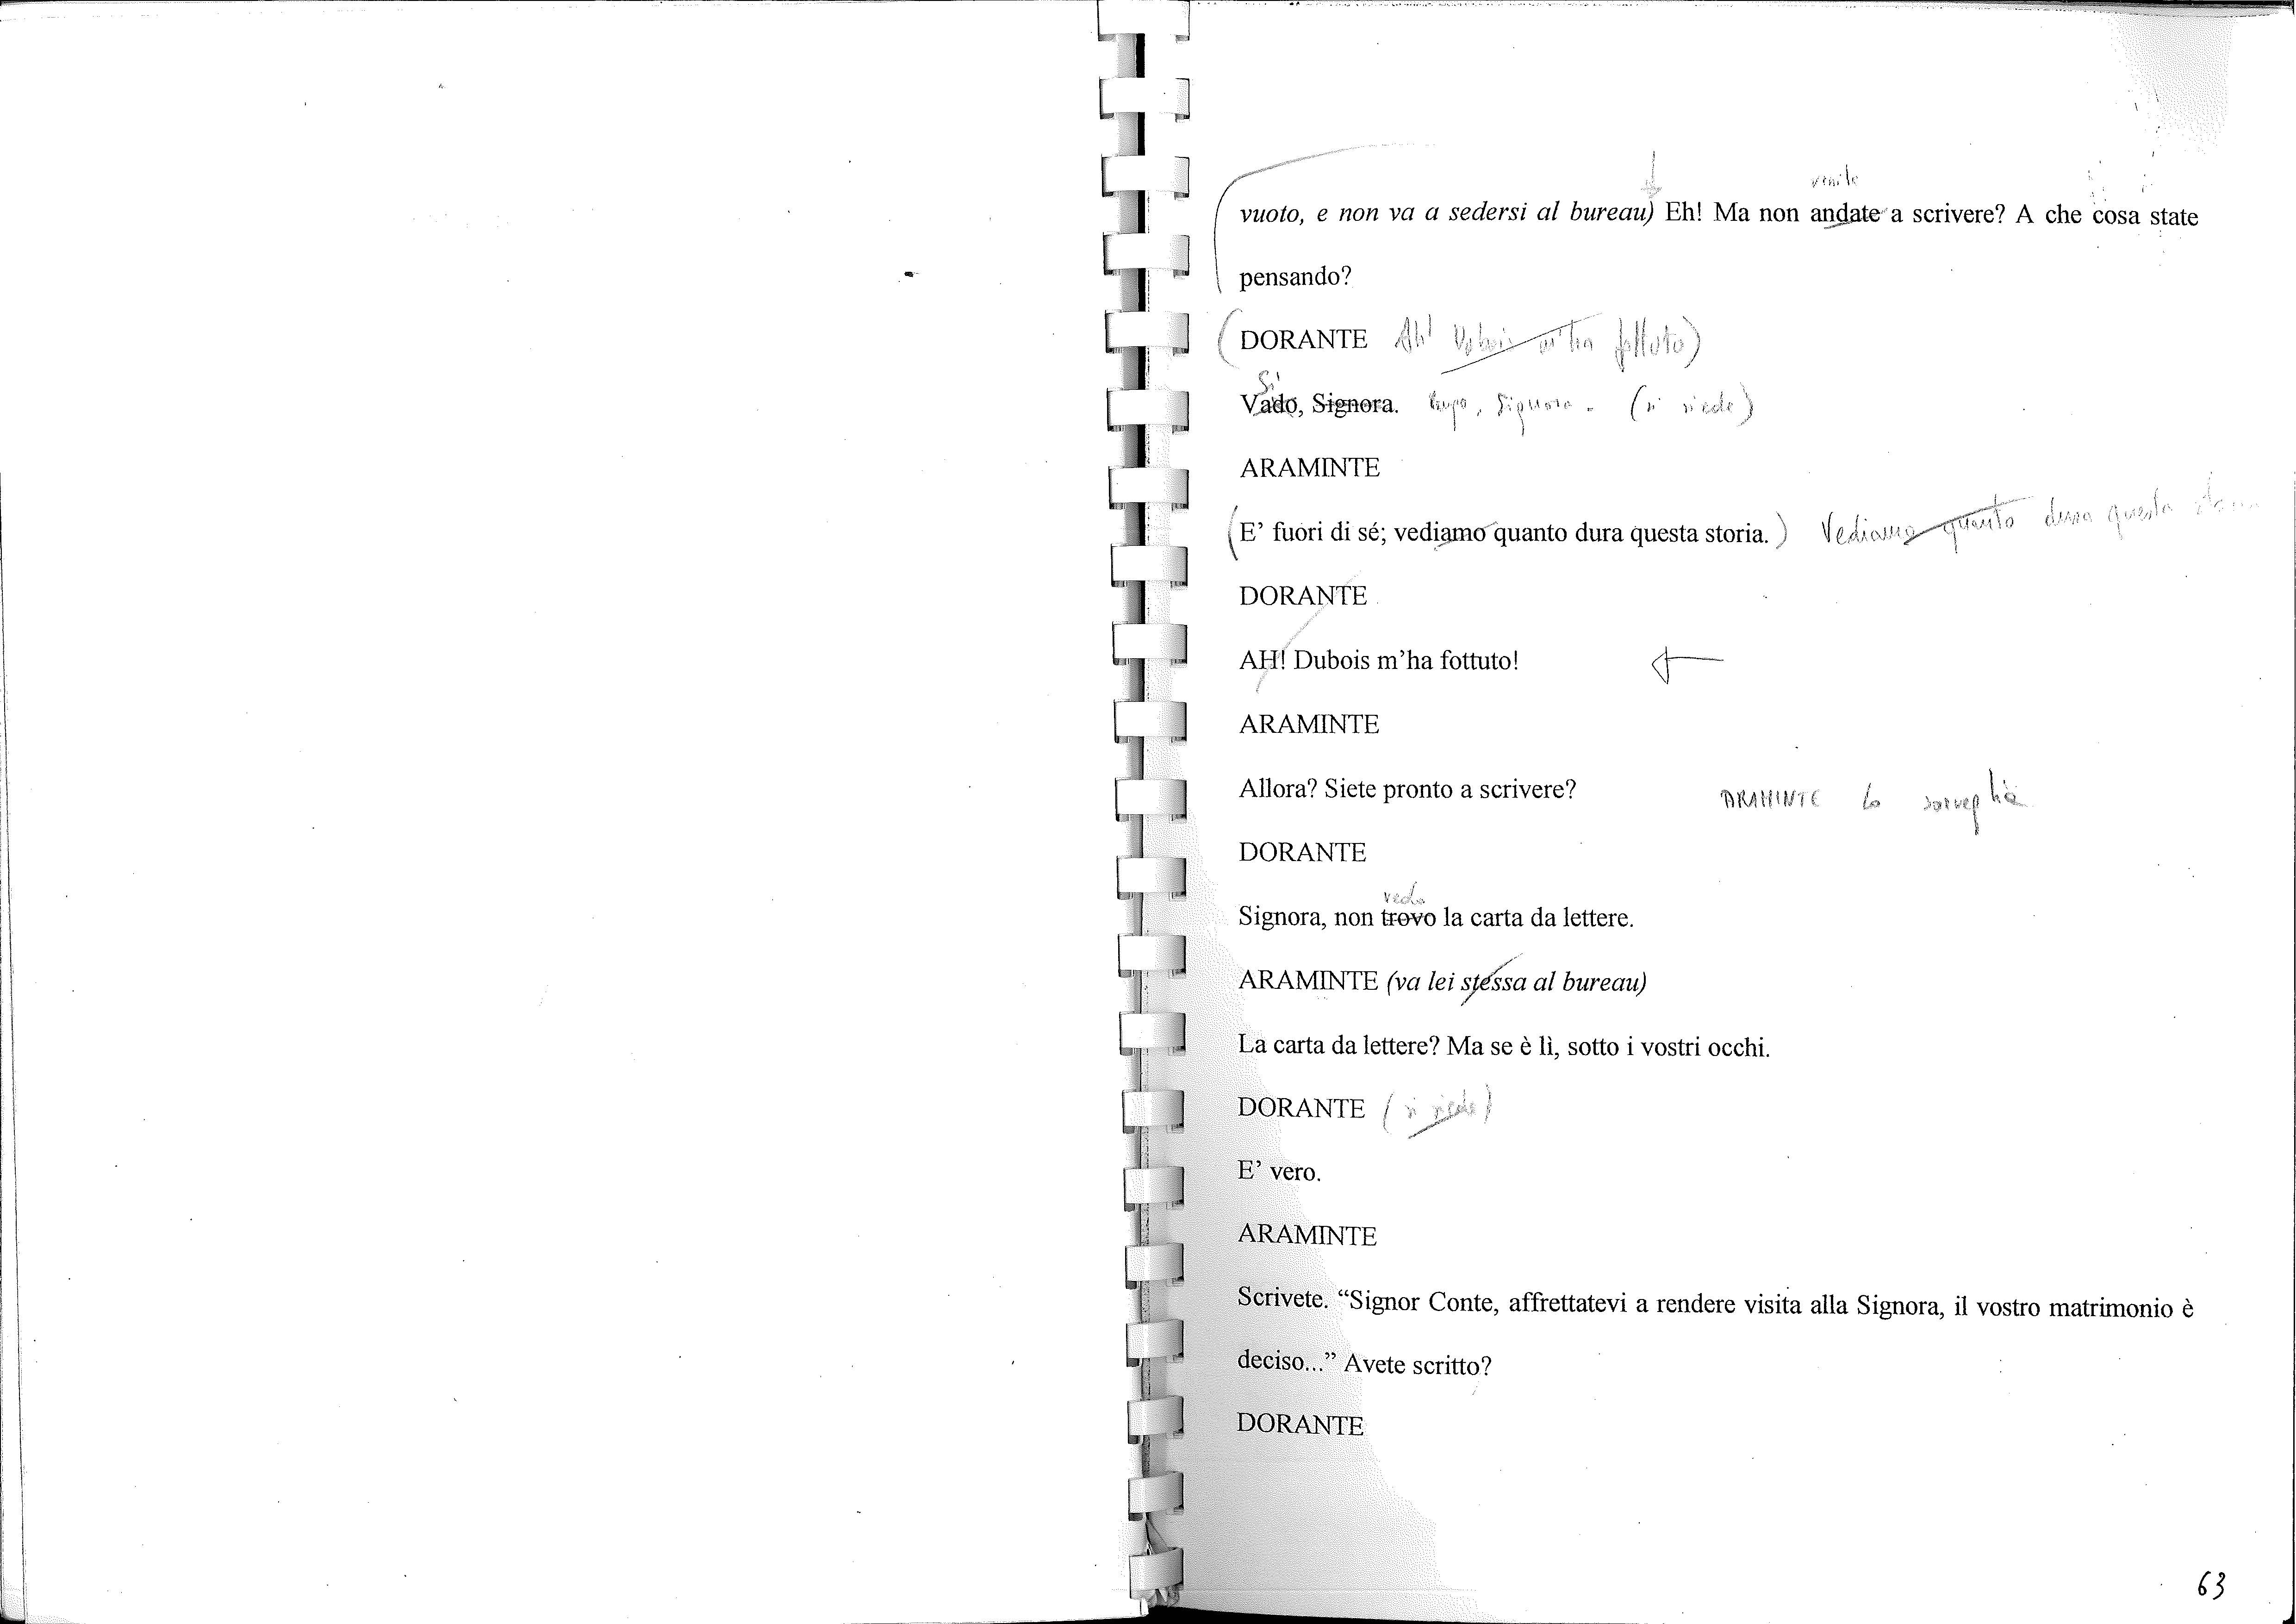 venite
vuoto, e non va a sedersi al bureau) Eh! Ma non andate a scrivere? A che cosa state
pensando?
(DORANTE Ah! Dubois m'ha fottuto)
Si
Vado, Signora. Signora. (si siede)
ARAMINTE
(E' fuori di sé; vediamo quanto dura questa storia.) Vediamo quanto dura questa storia
DORANTE
AH! Dubois m'ha fottuto!
ARAMINTE
Allora? Siete pronto a scrivere? ARAMINTE lo sorveglia
DORANTE
vedo
Signora, non trovo la carta da lettere.
ARAMINTE (va lei stessa al bureau)
La carta da lettere? Ma se è lì, sotto i vostri occhi.
DORANTE (si siede)
E' vero.
ARAMINTE
Scrivete. “Signor Conte, affrettatevi a rendere visita alla Signora, il vostro matrimonio è
deciso...” Avete scritto?
DORANTE
63